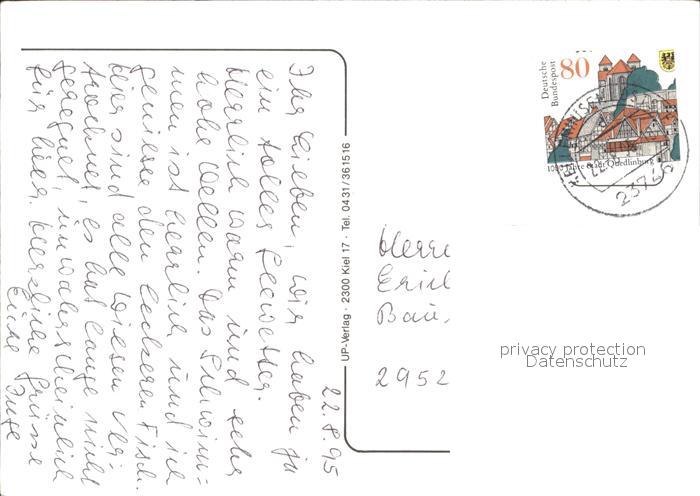 22.8.95
Ihr Lieben, wir haben ja
ein tolles
Herrlich warm und sehr
hohe Wellen. Das Schwim-
men ist herrlich und ich
geniesse den leckeren Fisch.
Hier sind alle Wiesen ver-
trocknet, es hat lange nicht
geregnet, unwahrscheinlich
für hier. Herzliche Grüsse
Eure Inge
UP-Verlag · 2300 Kiel 17 · Tel. 0431/361516
Deutsche
Bundespost
80
1000 Jahre Stadt Quedlinburg
23746
Herrn
Erich
Bau
2952
privacy protection
Datenschutz